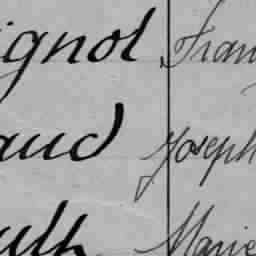 ignol Fran
aud Joseph
ulh Marie